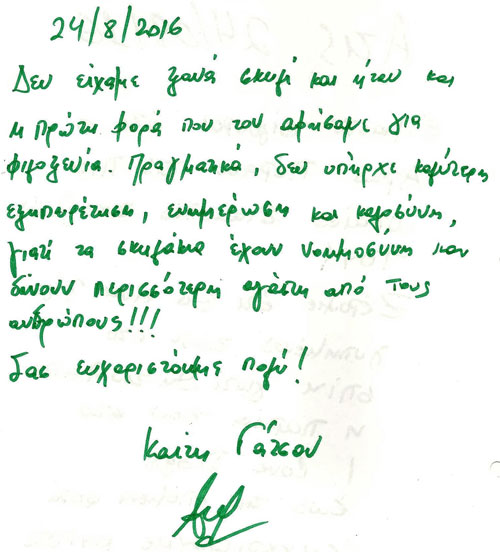 24/8/2016
Δεν είχαμε ξανά σκυλί και ήταν και
η πρώτη φορά που τον αφήσαμε για
φιλοξενία. Πραγματικά, δεν υπήρχε καλύτερη
εξυπηρέτηση, ενημέρωση και καλοσύνη,
γιατί τα σκυλάκια έχουν νοημοσύνη και
δίνουν περισσότερη αγάπη από τους
ανθρώπους!!!
Σας ευχαριστούμε πολύ!
Καίτη Γάτσου